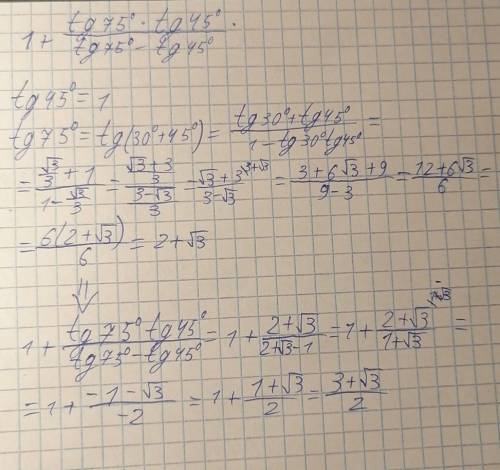 1 + (tg 75° · tg 45°)/(tg 75° - tg 45°) .
tg 45° = 1
tg 75° = tg(30° + 45°) = (tg 30° + tg 45°)/(1 - tg 30° tg 45°) =
= (√3/3 + 1)/(1 - √3/3) = ((√3 + 3)/3)/((3 - √3)/3) = (√3 + 3)/(3 - √3) ^(3+√3) = (3 + 6√3 + 9)/(9 - 3) = (12 + 6√3)/6 =
= 6(2 + √3)/6 = 2 + √3
⇓
1 + (tg 75° tg 45°)/(tg 75° - tg 45°) = 1 + (2 + √3)/(2 + √3 - 1) = 1 + (2 + √3)/(1 + √3) ^(1-√3) =
= 1 + (-1 - √3)/(-2) = 1 + (1 + √3)/2 = (3 + √3)/2